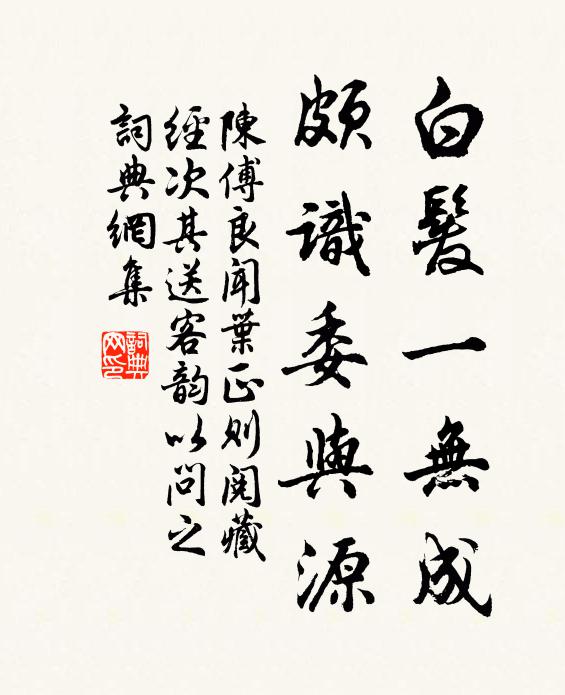 白髮一無成
頗識委與源
陳傅良聞葉正則閱藏
經次其送客韵以問之
詞典網集
詞典网印